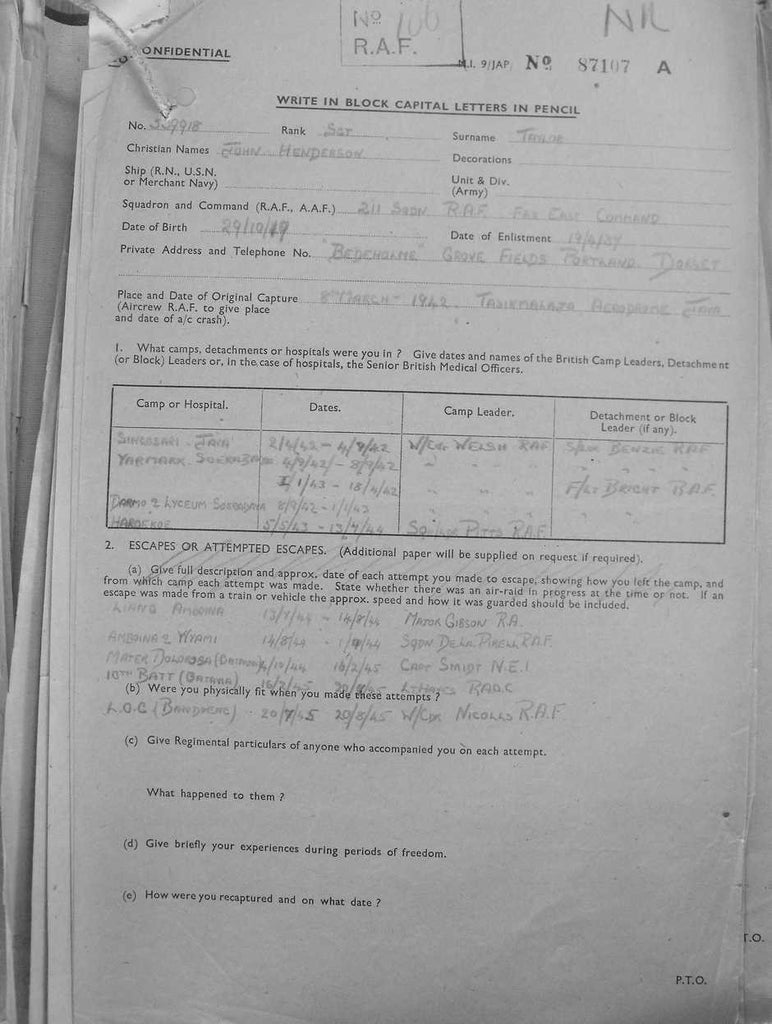 CONFIDENTIAL
No 100
R.A.F.
NIL
M.I. 9/JAP No 87107 A
WRITE IN BLOCK CAPITAL LETTERS IN PENCIL
No. Rank SGT Surname
Christian Names JOHN HENDERSON Decorations
Ship (R.N., U.S.N. or Merchant Navy) Unit & Div. (Army)
Squadron and Command (R.A.F., A.A.F.) 211 SQDN R.A.F. FAR EAST COMMAND
Date of Birth 29/10/19 Date of Enlistment
Private Address and Telephone No. "BEDEHOLME" GROVE FIELDS PORTLAND DORSET
Place and Date of Original Capture 8TH MARCH - 1942. TASIKMALAJA AERODROME JAVA
(Aircrew R.A.F. to give place
and date of a/c crash).
1. What camps, detachments or hospitals were you in ? Give dates and names of the British Camp Leaders, Detachment
(or Block) Leaders or, in the case of hospitals, the Senior British Medical Officers.
Camp or Hospital. Dates. Camp Leader. Detachment or Block Leader (if any).
SINGOSARI - JAVA 2/4/42 - 4/9/42 W/CDR WELSH RAF S/LDR BENZIE RAF
YARMARK SOERABAJA 4/9/42 - 8/9/42 " " " " " "
1/1/43 - 18/4/42 " " " F/LT BRIGHT RAF
DARMO & LYCEUM SOERABAJA 8/9/42 - 1/1/43 " " " " " "
HAROEKOE 5/5/43 - 13/7/44 SQN LDR PITTS RAF
2. ESCAPES OR ATTEMPTED ESCAPES. (Additional paper will be supplied on request if required).
(a) Give full description and approx. date of each attempt you made to escape, showing how you left the camp, and
from which camp each attempt was made. State whether there was an air-raid in progress at the time or not. If an
escape was made from a train or vehicle the approx. speed and how it was guarded should be included.
LIANG AMBOINA 13/7/44 - 14/8/44 MAJOR GIBSON R.A.
AMBOINA & WYAMI 14/8/44 - 1/9/44 SQDN DE LA PERELL R.A.F.
MATER DOLOROSA (BATAVIA) 4/10/44 16/2/45 CAPT SMIDT N.E.I
10TH BATT (BATAVIA) 16/2/45 LT HAYES RAOC
(b) Were you physically fit when you made these attempts ?
L.O.G (BANDOENG) - 20/7/45 20/8/45 W/CDR NICOLLS R.A.F
(c) Give Regimental particulars of anyone who accompanied you on each attempt.
What happened to them ?
(d) Give briefly your experiences during periods of freedom.
(e) How were you recaptured and on what date ?
T.O.
P.T.O.